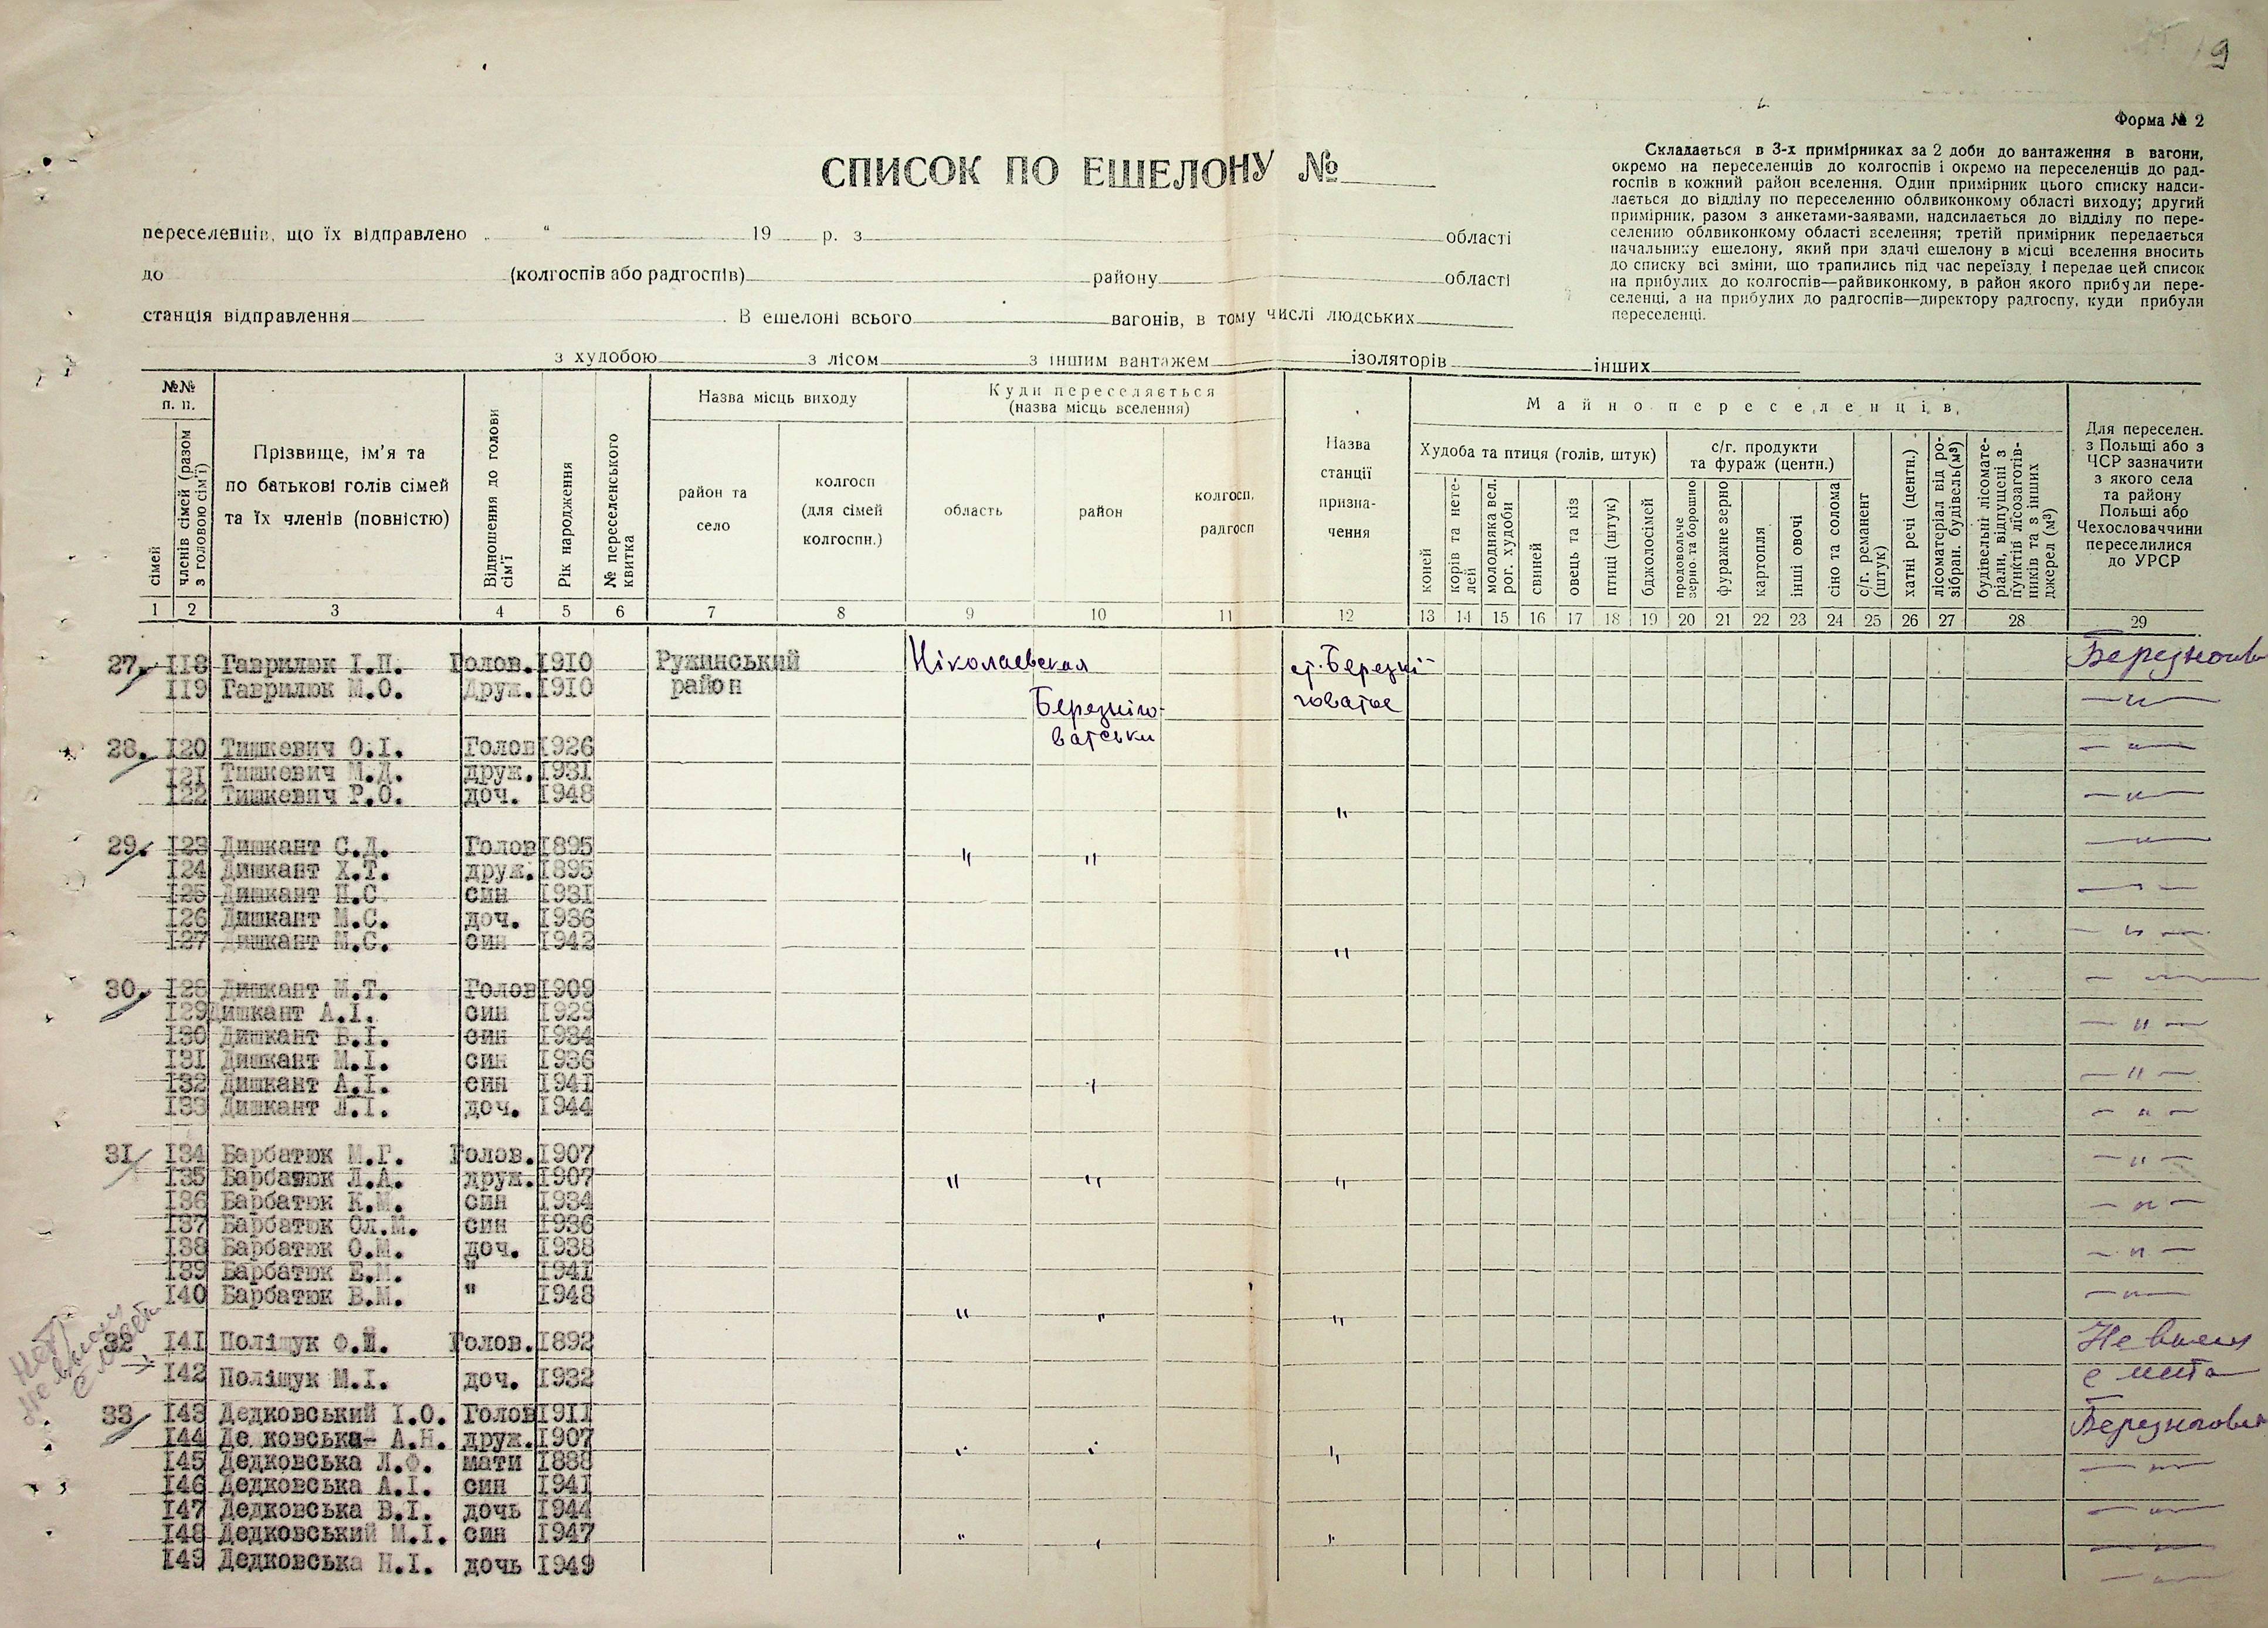 9
Форма № 2
СПИСОК ПО ЕШЕЛОНУ №
Складається в 3-х примірниках за 2 доби до вантаження в вагони,
окремо на переселенців до колгоспів і окремо на переселенців до рад-
госпів в кожний район вселення. Один примірник цього списку надси-
лається до відділу по переселенню облвиконкому області виходу; другий
примірник, разом з анкетами-заявами, надсилається до відділу по пере-
селенню облвиконкому області вселення; третій примірник передається
начальнику ешелону, який при здачі ешелону в місці вселення вносить
до списку всі зміни, що трапились під час переїзду і передає цей список
на прибулих до колгоспів—райвиконкому, в район якого прибули пере-
селенці, а на прибулих до радгоспів—директору радгоспу, куди прибули
переселенці.
переселенців, що їх відправлено „ “ 19 р. з області
до (колгоспів або радгоспів) району області
станція відправлення В ешелоні всього вагонів, в тому числі людських
з худобою з лісом з іншим вантажем ізоляторів інших
№№
п. п.
сімей
членів сімей (разом
з головою сім'ї)
Прізвище, ім'я та
по батькові голів сімей
та їх членів (повністю)
Відношення до голови
сім'ї
Рік народження
№ переселенського
квитка
Назва місць виходу
район та
село
колгосп
(для сімей
колгоспн.)
Куди переселяється
(назва місць вселення)
область
район
колгосп,
радгосп
Назва
станції
призна-
чення
Майно переселенців
Худоба та птиця (голів, штук)
коней
корів та нете-
лей
молодняка вел.
рог. худоби
свиней
овець та кіз
птиці (штук)
бджолосімей
с/г. продукти
та фураж (центн.)
продовольче
зерно та борошно
фуражне зерно
картопля
інші овочі
сіно та солома
с/г. реманент
(штук)
хатні речі (центн.)
лісоматеріал від ро-
зібран. будівель (м³)
будівельні лісомате-
ріали, відпущені з
пунктів лісозаготів-
ників та з інших
джерел (м³)
Для переселен.
з Польщі або з
ЧСР зазначити
з якого села
та району
Польщі або
Чехословаччини
переселилися
до УРСР
1 2 3 4 5 6 7 8 9 10 11 12 13 14 15 16 17 18 19 20 21 22 23 24 25 26 27 28 29
27. 118 Гаврилюк І.П. Голов. 1910 Ружинський Ніколаевская ст. Березні-
119 Гаврилюк М.О. Друж. 1910 район Березніго- говатое — " —
ватськи
28. 120 Тишкевич О.І. Голов 1926 — " —
121 Тишкевич М.Д. друж. 1931
122 Тишкевич Р.О. доч. 1948 " — " —
29. 123 Дишкант С.Д. Голов 1895 " " — " —
124 Дишкант Х.Т. друж. 1895
125 Дишкант П.С син 1931 — " —
126 Дишкант М.С. доч. 1936
127 Дишкант М.С. син 1942 " — " —
30. 128 Дишкант М.Т. Голов 1909 — " —
129 Дишкант А.І. син 1929
130 Дишкант В.І. син 1934 — " —
131 Дишкант М.І. син 1936
132 Дишкант А.І. син 1941 " — " —
133 Дишкант Л.І. доч. 1944 — " —
31 134 Барбатюк М.Г. Голов. 1907 — " —
135 Барбатюк Л.А. друж. 1907 " " "
136 Барбатюк К.М. син 1934 — " —
137 Барбатюк Ол.М. син 1936
138 Барбатюк О.М. доч. 1938 — " —
139 Барбатюк Е.М. " 1941
140 Барбатюк В.М. " 1948 " " " — " —
32 141 Поліщук Ф.Й. Голов. 1892 Не выех
142 Поліщук М.І. доч. 1932 с места
33 143 Дедковський І.О. Голов 1911
144 Де ковська- А.Н. друж. 1907 " " "
145 Дедковська Л.Ф. мати 1888 — " —
146 Дедковська А.І. син 1941
147 Дедковська В.І. дочь 1944 — " —
148 Дедковський М.І. син 1947 " " " — " —
149 Дедковська Н.І. дочь 1949 — " —